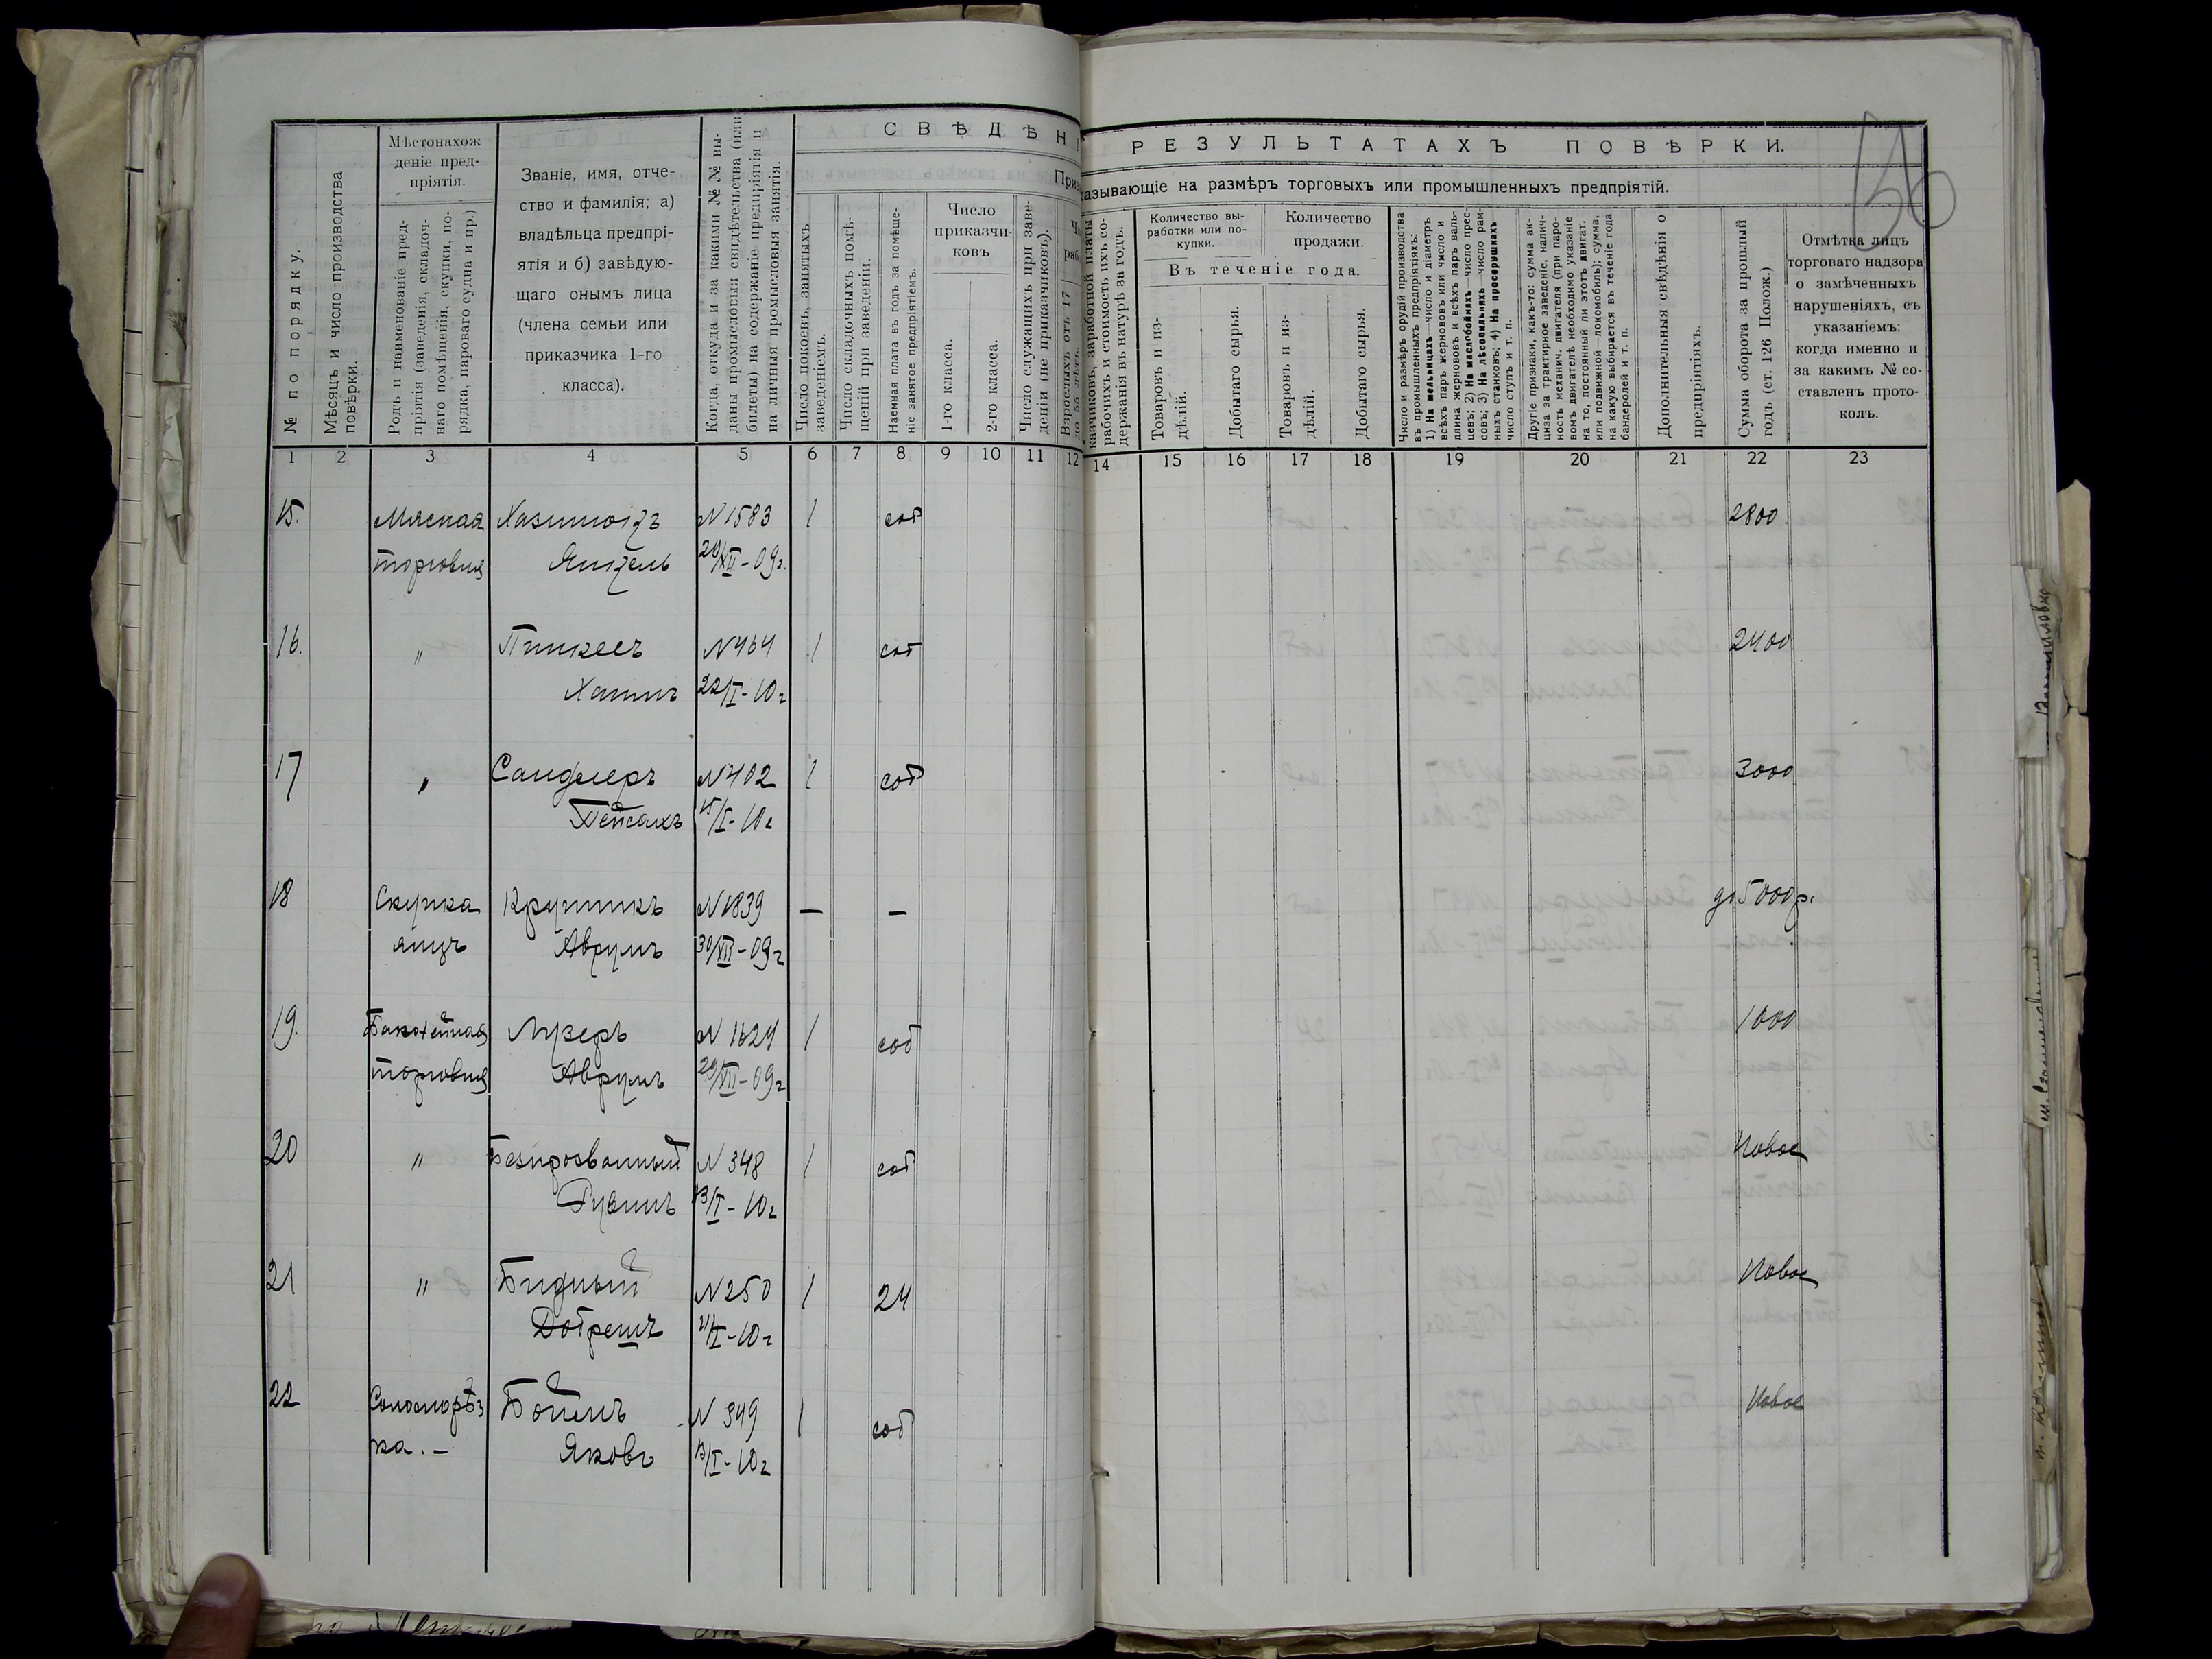 СВѢДѢН
РЕЗУЛЬТАТАХЪ ПОВѢРКИ.
казывающіе на размѣръ торговыхъ или промышленныхъ предпріятій.
№ по порядку.
Мѣсяцъ и число производства
повѣрки.
Мѣстонахож
деніе пред-
пріятія.
Родъ и наименованіе пред-
пріятія (заведенія, складоч-
наго помѣщенія, скупки, по-
рядка, пароваго судна и пр.)
Званіе, имя, отче-
ство и фамилія; а)
владѣльца предпрі-
ятія и б) завѣдую-
щаго онымъ лица
(члена семьи или
приказчика 1-го
класса).
Когда, откуда и за какими №№ вы-
даны промысловыя свидѣтельства (или
билеты) на содержаніе предпріятія и
на личныя промысловыя занятія.
Число покоевъ, занятыхъ
заведеніемъ.
Число складочныхъ помѣ-
щеній при заведеніи.
Наемная плата въ годъ за помѣще-
ніе занятое предпріятіемъ.
Число
приказчи-
ковъ
1-го класса.
2-го класса.
Число служащихъ при заве-
деніи (не приказчиковъ).
Взрослыхъ отъ 17
казчиковъ, заработной платы
рабочихъ и стоимость ихъ со-
держанія въ натурѣ за годъ.
Количество вы-
работки или по-
купки.
Количество
продажи.
Въ теченіе года.
Товаровъ и из-
дѣлій.
Добытаго сырья.
Товаровъ и из-
дѣлій.
Добытаго сырья.
Число и размѣръ орудій производства
въ промышленныхъ предпріятіяхъ:
1) На мельницахъ число и діаметръ
всѣхъ паръ жернововъ или число и
длина жернововъ и всѣхъ паръ валь-
цевъ; 2) На маслобойняхъ число прес-
совъ; 3) На лѣсопильняхъ число рам-
ныхъ станковъ; 4) На просорушкахъ
число ступъ и т. п.
Другіе признаки, какъ-то: сумма ак-
циза за трактирное заведеніе, налич-
ность механич. двигателя (при паро-
вомъ двигателѣ необходимо указаніе
на то, постоянный ли этотъ двигат.
или подвижной—локомобиль); сумма,
на какую выбирается въ теченіе года
бандеролей и т. п.
Дополнительныя свѣдѣнія о
предпріятіяхъ.
Сумма оборота за прошлый
годъ (ст. 126 Полож.)
Отмѣтка лицъ
торговаго надзора
о замѣченныхъ
нарушеніяхъ, съ
указаніемъ:
когда именно и
за какимъ № со-
ставленъ прото-
колъ.
1 2 3 4 5 6 7 8 9 10 11 12 14 15 16 17 18 19 20 21 22 23
15. Мясная N 1583 1 соб 2800
торговля Янкель 29/XII-09 г.
16. " Пинкасъ N 464 1 соб 2400
Хаимъ 22/I-10 г
17 " Сандлеръ N 402 1 соб 3000
Пейсахъ 15/I-10 г
18 Скупка Крупникъ N 1839 — — до 5000 р.
яицъ Аврумъ 30/XII-09 г
19. Бакалейная Лузеръ N 1624 1 соб 1000
торговля Аврумъ 29/XII-09 г
20 " Безпрозванный N 348 1 соб Новое
Рувинъ 13/I-10 г
21 " Бидный N 250 1 24 Новое
Добрешъ 11/I-10 г
22 Бойчъ N 349 1 соб Новое
ка.- Яковъ 13/I-10 г